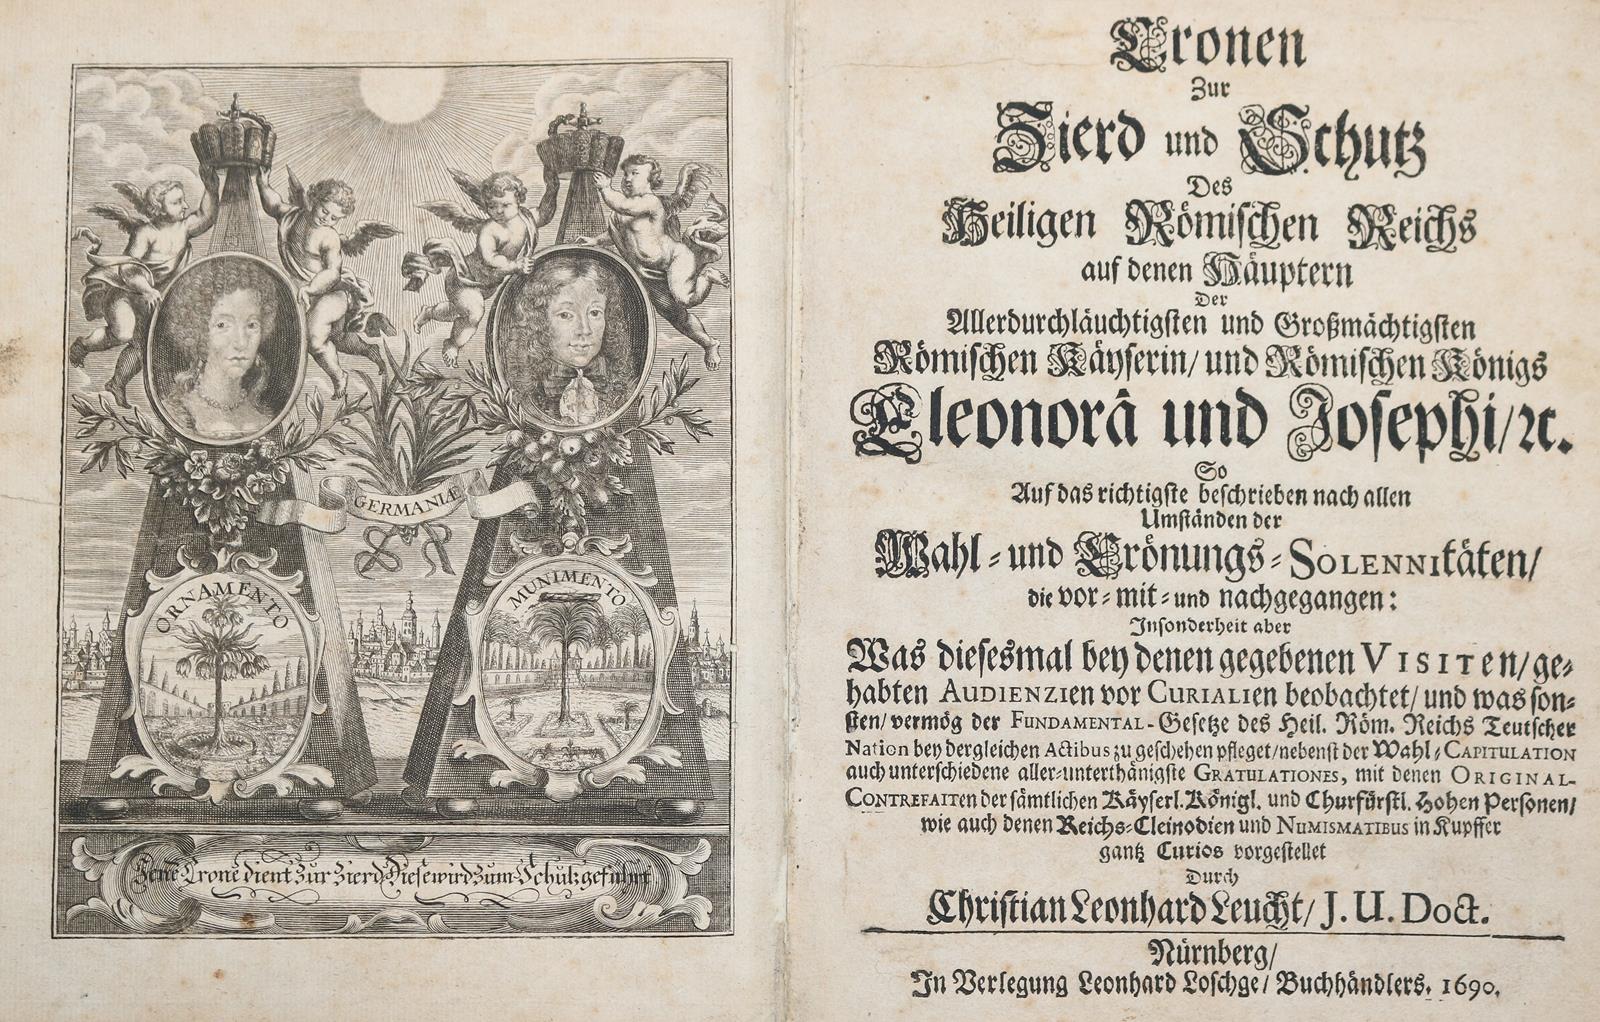 GERMANIÆ
ORNAMENTO
MUNIMENTO
Jene Crone dient Zur Zierd Diese wird Zum Schutz geführt
Cronen
Zur
Zierd und Schutz
Des
Heiligen Römischen Reichs
auf denen Häuptern
Der
Allerdurchläuchtigsten und Großmächtigsten
Römischen Käyserin/ und Römischen Königs
Eleonorä und Josephi/ ꝛc.
So
Auf das richtigste beschrieben nach allen
Umständen der
Wahl- und Crönungs-SOLENNItäten/
die vor- mit- und nachgegangen:
Insonderheit aber
Was diesesmal bey denen gegebenen VISITen/ ge-
habten AUDIENZIen vor CURIALIen beobachtet/ und was son-
sten/ vermög der FUNDAMENTAL-Gesetze des Heil. Röm. Reichs Teutscher
Nation bey dergleichen Actibus zu geschehen pfleget/ nebenst der Wahl-CAPITULATION
auch unterschiedene aller-unterthänigste GRATULATIONES, mit denen ORIGINAL-
CONTREFAITen der sämtlichen Käyserl. Königl. und Churfürstl. Hohen Personen/
wie auch denen Reichs-Cleinodien und NUMISMATIBUS in Kupffer
gantz Curios vorgestellet
Durch
Christian Leonhard Leucht/ J. U. Doct.
Nürnberg/
In Verlegung Leonhard Loschge/ Buchhändlers. 1690.